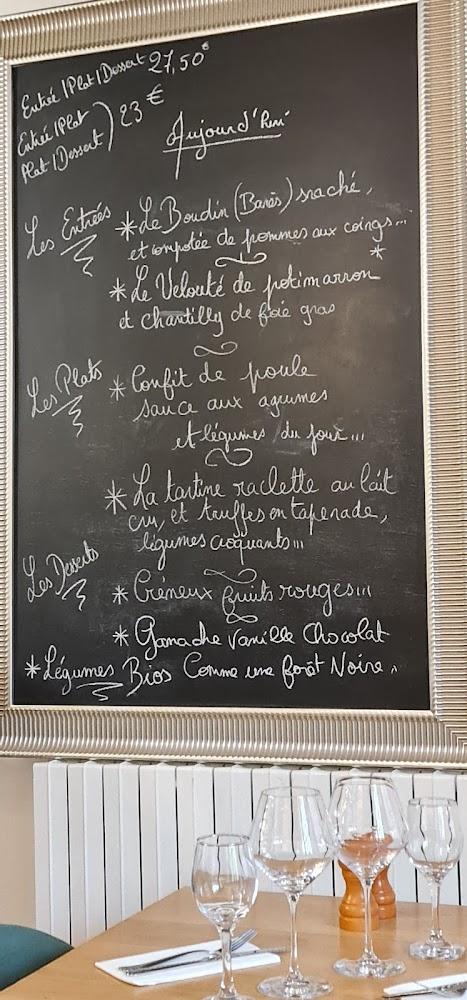 Entrée | Plat | Dessert 27,50€
Entrée | Plat
Plat | Dessert ) 23 €
Aujourd'hui
Les Entrées
* Le Boudin (Banès) snaché,
et compotée de pommes aux coings...
* Le Velouté de potimarron *
et chantilly de foie gras
Les Plats
* Confit de poule
sauce aux agrumes
et légumes du jour...
* La tartine raclette au lait
cru, et truffes en tapenade,
légumes croquants...
Les Desserts
* Crémeux fruits rouges...
* Ganache Vanille Chocolat
* Légumes Bios Comme une forêt Noire.